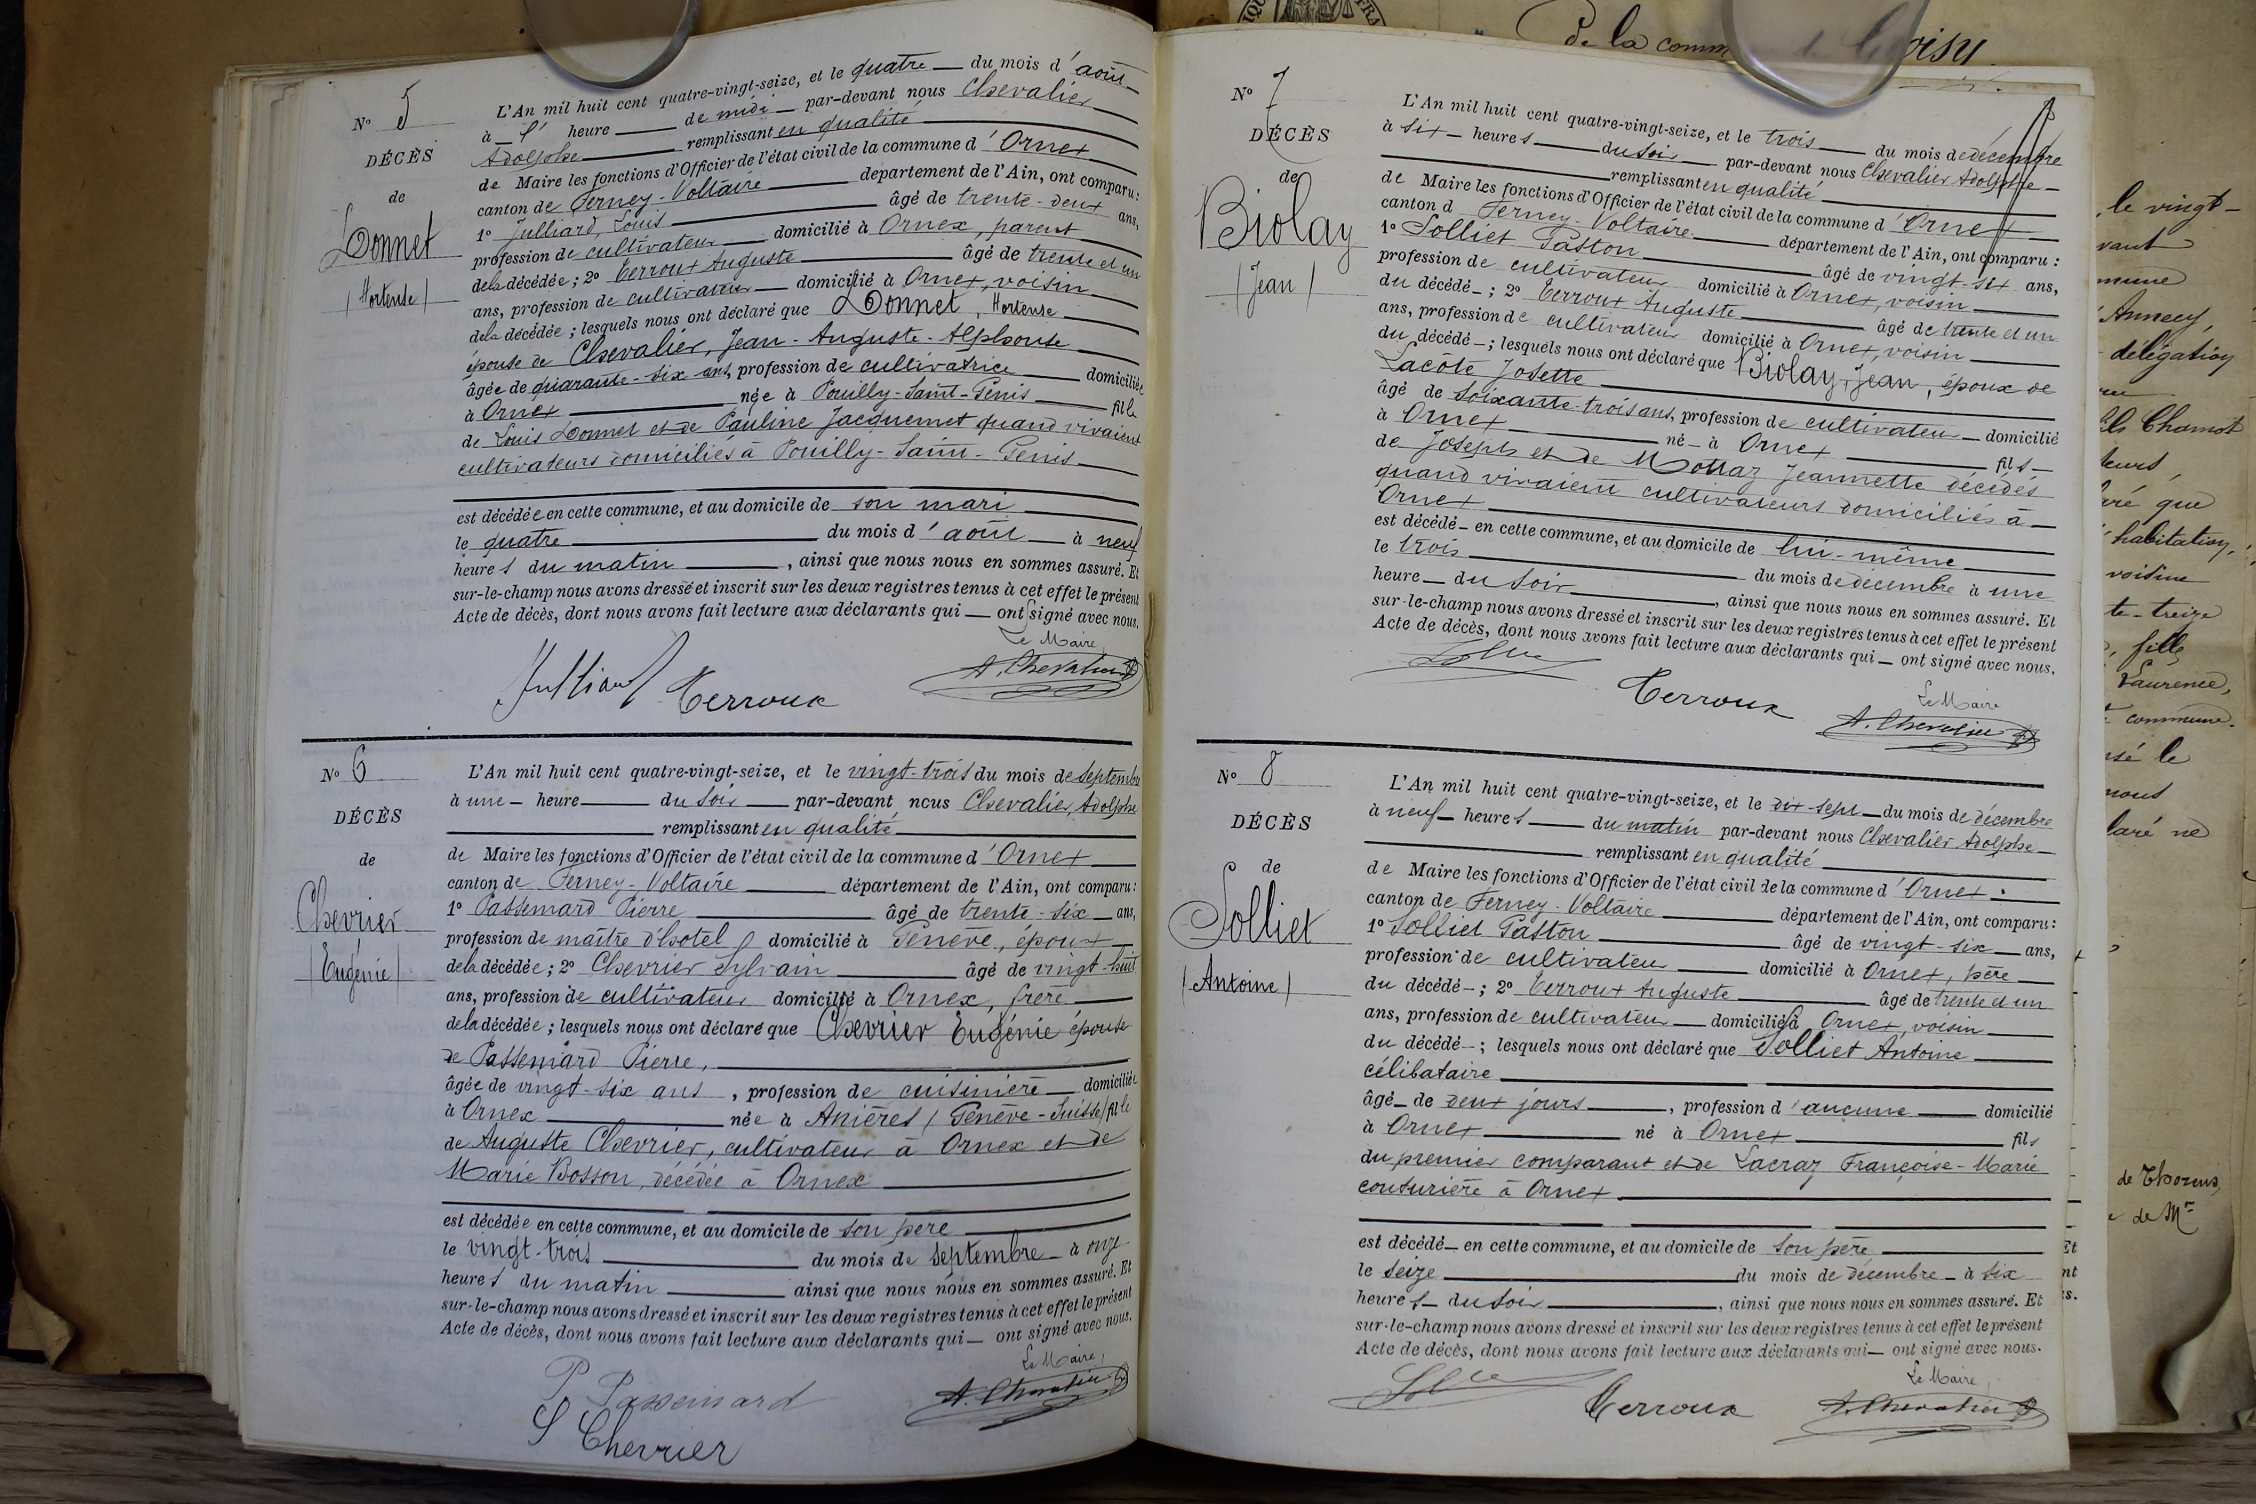 N° 5
DÉCÈS
de
Donnet
(Hortense)
L'An mil huit cent quatre-vingt-seize, et le quatre du mois d'août
à l' heure de midi par-devant nous Chevalier
Adolphe remplissant en qualité
de Maire les fonctions d'Officier de l'état civil de la commune d'Ornex
canton de Ferney-Voltaire département de l'Ain, ont comparu :
1° Julliard, Louis âgé de trente-deux ans,
profession de cultivateur domicilié à Ornex, parent
de la décédée ; 2° Terroux Auguste âgé de trente et un
ans, profession de cultivateur domicilié à Ornex, voisin
de la décédée ; lesquels nous ont déclaré que Donnet, Hortense
épouse de Chevalier, Jean-Auguste-Alphonse
âgée de quarante-six ans, profession de cultivatrice domiciliée
à Ornex née à Pouilly-Saint-Genis fille
de Louis Donnet et de Pauline Jacquemet quand vivaient
cultivateurs domiciliés à Pouilly-Saint-Genis
est décédée en cette commune, et au domicile de son mari
le quatre du mois d'août à neuf
heures du matin, ainsi que nous nous en sommes assuré. Et
sur-le-champ nous avons dressé et inscrit sur les deux registres tenus à cet effet le présent
Acte de décès, dont nous avons fait lecture aux déclarants qui ont signé avec nous.
Le Maire,
Julliard Terroux A. Chevalier
N° 6
DÉCÈS
de
Chevrier
(Eugénie)
L'An mil huit cent quatre-vingt-seize, et le vingt-trois du mois de septembre
à une heure du soir par-devant nous Chevalier, Adolphe
remplissant en qualité
de Maire les fonctions d'Officier de l'état civil de la commune d'Ornex
canton de Ferney-Voltaire département de l'Ain, ont comparu :
1° Passemard Pierre âgé de trente-six ans,
profession de maître d'hôtel domicilié à Genève, époux
de la décédée ; 2° Chevrier Sylvain âgé de vingt-huit
ans, profession de cultivateur domicilié à Ornex, frère
de la décédée ; lesquels nous ont déclaré que Chevrier Eugénie épouse
de Passemard Pierre,
âgée de vingt-six ans, profession de cuisinière domiciliée
à Ornex née à Anières (Genève-Suisse) fille
de Auguste Chevrier, cultivateur à Ornex et de
Marie Bosson, décédée à Ornex
est décédée en cette commune, et au domicile de son père
le vingt-trois du mois de septembre à onze
heures du matin ainsi que nous nous en sommes assuré. Et
sur-le-champ nous avons dressé et inscrit sur les deux registres tenus à cet effet le présent
Acte de décès, dont nous avons fait lecture aux déclarants qui ont signé avec nous.
Le Maire,
P. Passemard A. Chevalier
S Chevrier
de la
N° 7
DÉCÈS
de
Biolay
(Jean)
L'An mil huit cent quatre-vingt-seize, et le trois du mois de décembre
à six heures du soir par-devant nous Chevalier Adolphe
remplissant en qualité
de Maire les fonctions d'Officier de l'état civil de la commune d'Ornex
canton d Ferney-Voltaire département de l'Ain, ont comparu :
1° Solliet Gaston âgé de vingt-six ans,
profession de cultivateur domicilié à Ornex, voisin
du décédé ; 2° Terroux Auguste âgé de trente et un
ans, profession de cultivateur domicilié à Ornex, voisin
du décédé ; lesquels nous ont déclaré que Biolay, Jean, époux de
Lacôte Josette
âgé de soixante-trois ans, profession de cultivateur domicilié
à Ornex né à Ornex fils
de Joseph et de Mottaz Jeannette décédés
quand vivaient cultivateurs domiciliés à
Ornex
est décédé en cette commune, et au domicile de lui-même
le trois du mois de décembre à une
heure du soir, ainsi que nous nous en sommes assuré. Et
sur-le-champ nous avons dressé et inscrit sur les deux registres tenus à cet effet le présent
Acte de décès, dont nous avons fait lecture aux déclarants qui ont signé avec nous.
Terroux Le Maire
A. Chevalier
N° 8
DÉCÈS
de
Solliet
(Antoine)
L'An mil huit cent quatre-vingt-seize, et le dix-sept du mois de décembre
à neuf heures du matin par-devant nous Chevalier Adolphe
remplissant en qualité
de Maire les fonctions d'Officier de l'état civil de la commune d'Ornex.
canton de Ferney-Voltaire département de l'Ain, ont comparu :
1° Solliet Gaston âgé de vingt-six ans,
profession de cultivateur domicilié à Ornex, père
du décédé ; 2° Terroux Auguste âgé de trente et un
ans, profession de cultivateur domicilié à Ornex, voisin
du décédé ; lesquels nous ont déclaré que Solliet Antoine
célibataire
âgé de deux jours, profession d'aucune domicilié
à Ornex né à Ornex fils
du premier comparant et de Lacraz Françoise-Marie
couturière à Ornex
est décédé en cette commune, et au domicile de son père
le seize du mois de décembre à six
heures du soir, ainsi que nous nous en sommes assuré. Et
sur-le-champ nous avons dressé et inscrit sur les deux registres tenus à cet effet le présent
Acte de décès, dont nous avons fait lecture aux déclarants qui ont signé avec nous.
Le Maire,
Terroux A. Chevalier
le vingt-
Annecy,
délégation
Chamot
que
habitation,
voisine
fille
Laurence,
commune.
le
nous
de Thorens,
de Mr